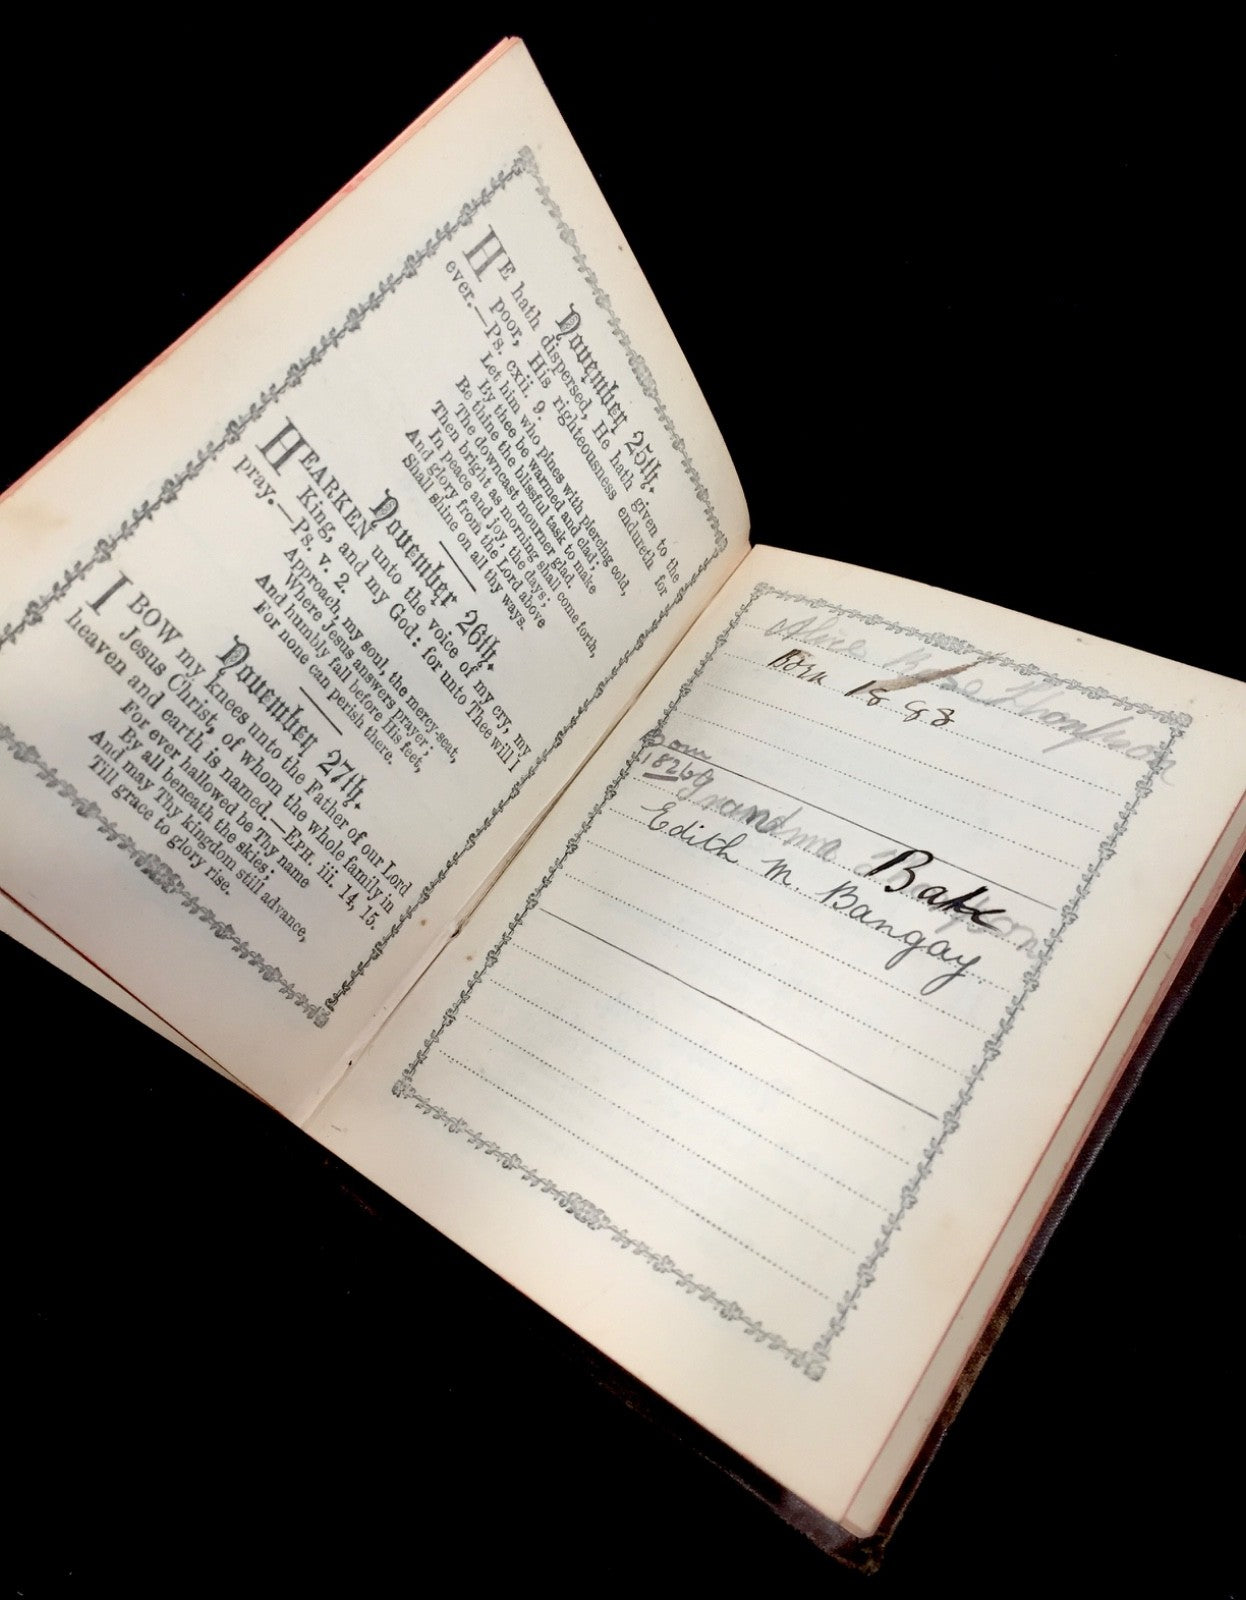 November 25th.
HE hath dispersed, He hath given to the
poor, His righteousness endureth for
ever.—Ps. cxii. 9.
Let him who pines with piercing cold,
By thee be warmed and clad;
Be thine the blissful task to make
The downcast mourner glad.
Then bright as morning shall come forth,
In peace and joy, the days;
And glory from the Lord above
Shall shine on all thy ways.
November 26th.
HEARKEN unto the voice of my cry, my
King, and my God: for unto Thee will I
pray.—Ps. v. 2.
Approach, my soul, the mercy-seat,
Where Jesus answers prayer;
And humbly fall before His feet,
For none can perish there.
November 27th.
I BOW my knees unto the Father of our Lord
Jesus Christ, of whom the whole family in
heaven and earth is named.—EPH. iii. 14, 15.
For ever hallowed be Thy name
By all beneath the skies;
And may Thy kingdom still advance,
Till grace to glory rise.
Alice Rose Thompson
Born 1888
Born
1826 Grandma
Edith M. Bangay.